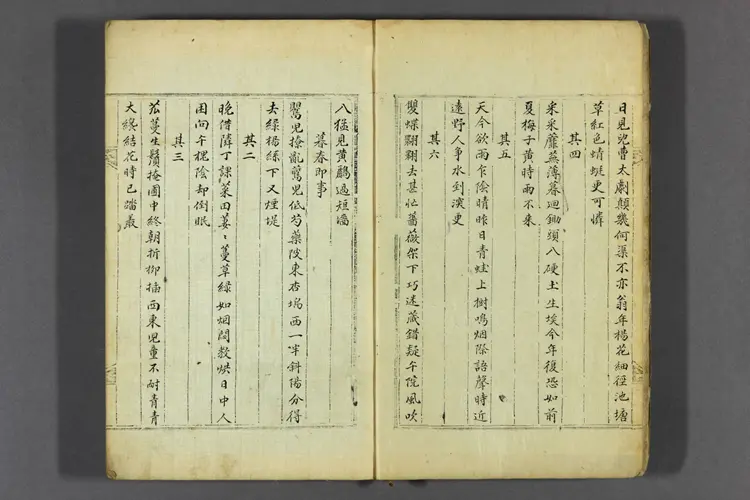 日見兒曹太劇顛幾何渠不亦翁年楊花細徑池塘
草紅色蜻蜓更可憐
其四
采采蘼蕪薄暮迴鋤頭入硬土生埃今年復恐如前
夏梅子黃時雨不來
其五
天今欲雨乍陰晴昨日青蛙上樹鳴烟際語聲時近
遠野人爭水到深更
其六
雙蝶翾翾去甚忙薔薇架下巧迷藏錯疑午院風吹
入猛見黃鸝過短墻
暮春即事
鸎兒撩亂鷰兒低芍藥陂東杏塢西一半斜陽分得
去綠楊線下又煙堤
其二
晚借丁課菜田萋〻蔓草綠如烟閒教烘日中人
困向午槐陰却倒眠
其三
苽蔓生鬚掩圃中終朝折柳插西東兒童不耐青青
大終結花時已踏叢